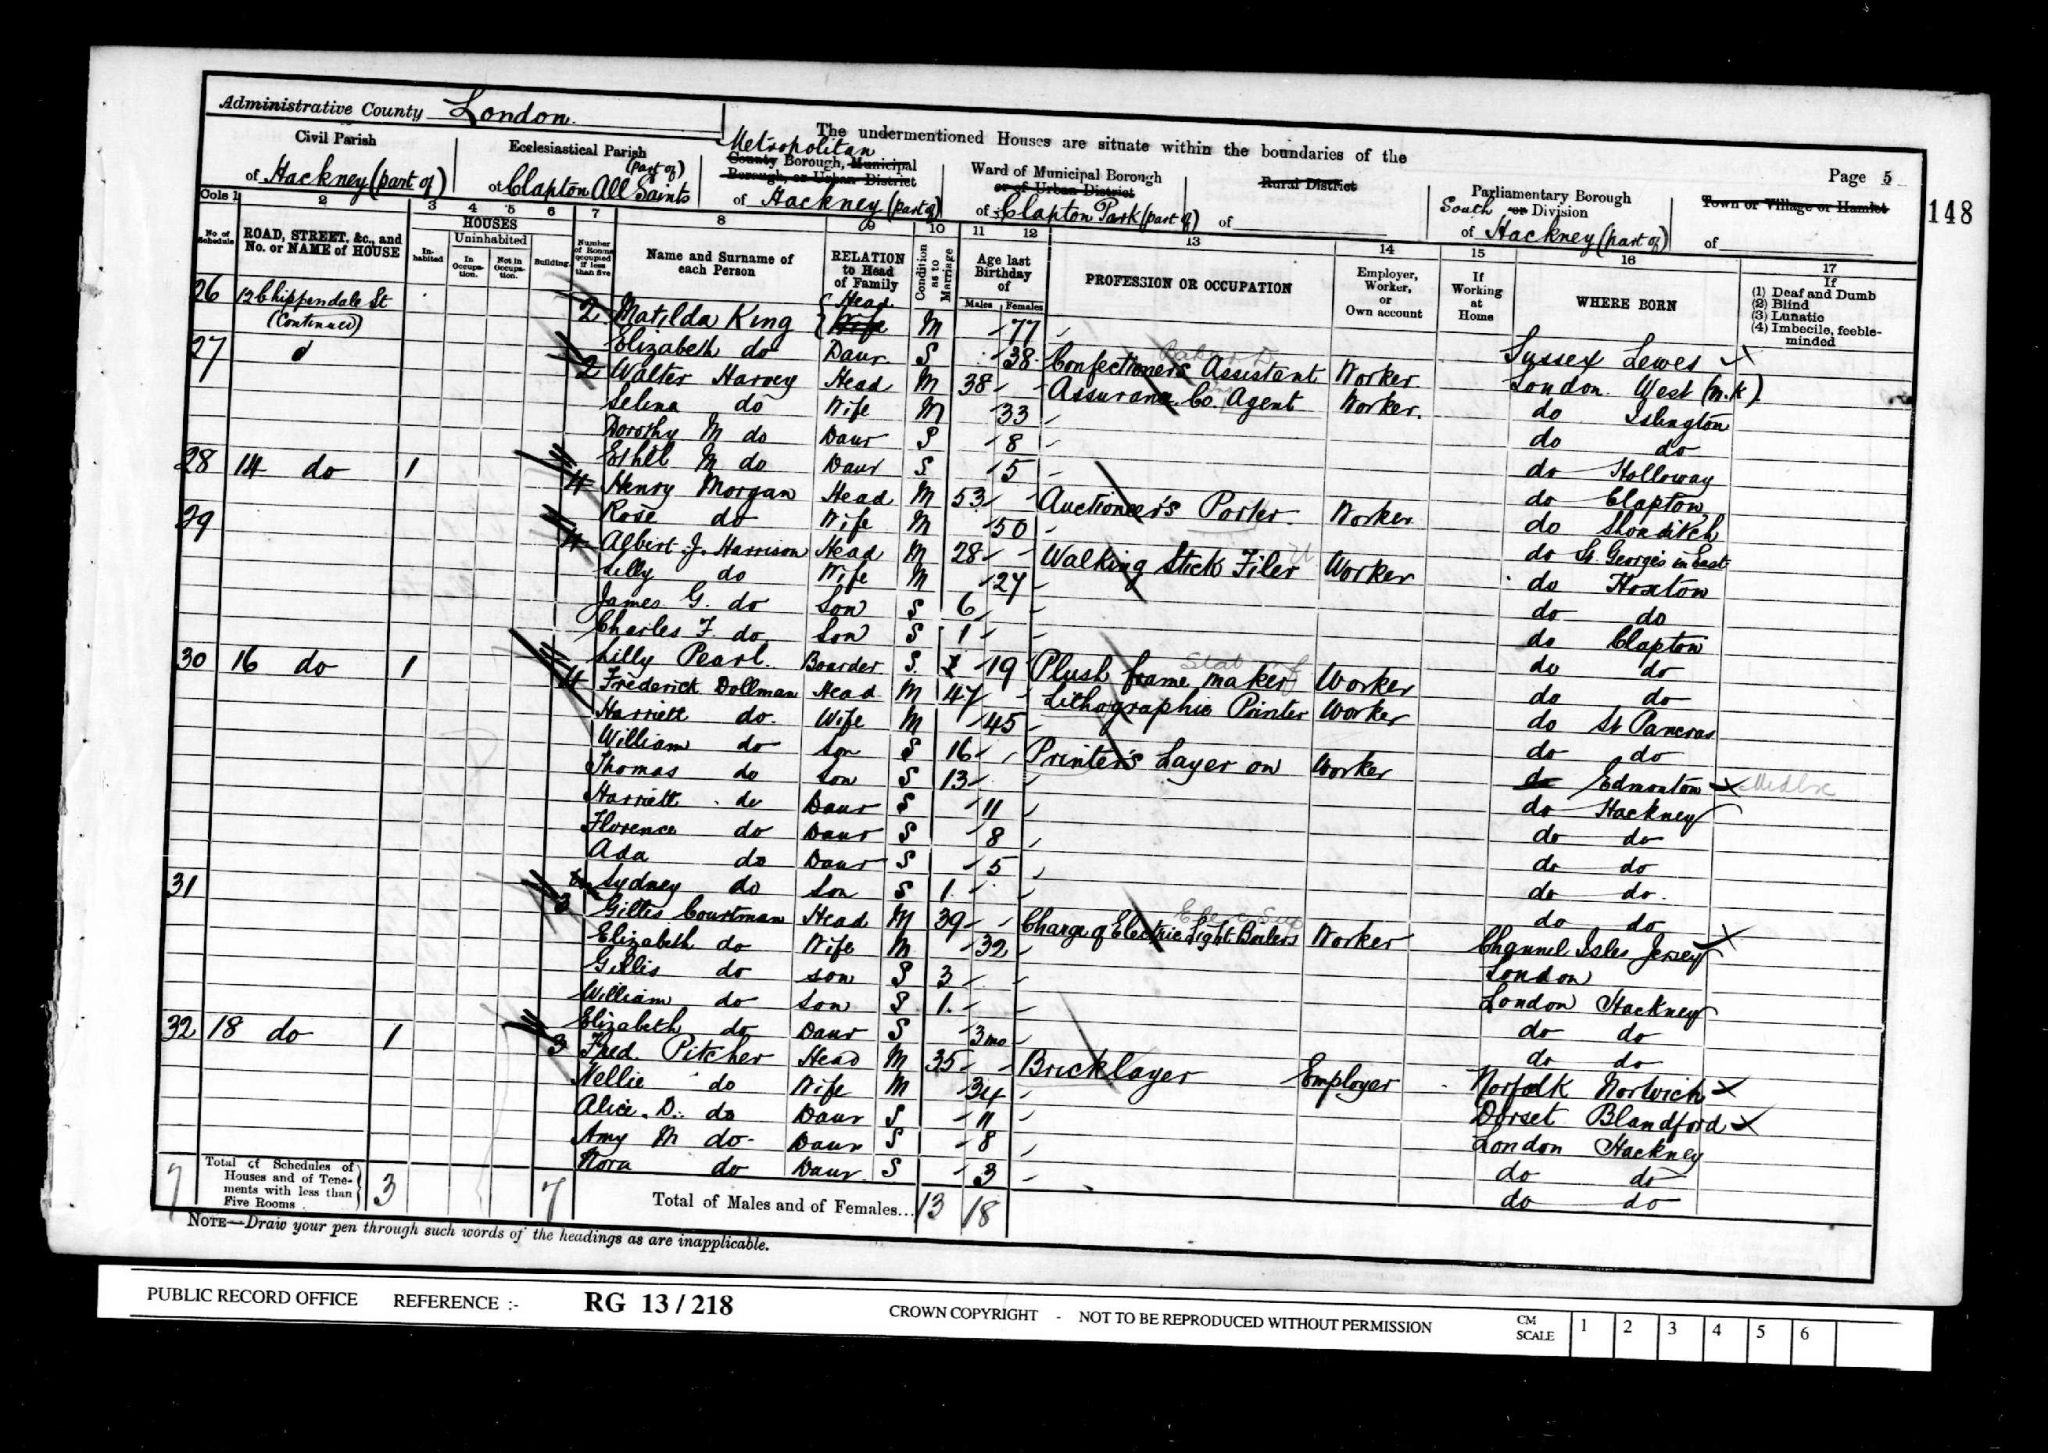 Administrative County London.
The undermentioned Houses are situate within the boundaries of the
Page 5
148
Civil Parish
of Hackney (part of)
Ecclesiastical Parish
(part of)
of Clapton All Saints
Metropolitan
County Borough, Municipal
Borough, or Urban District
of Hackney (part of)
Ward of Municipal Borough
or of Urban District
of Clapton Park (part of)
Rural District
of
Parliamentary Borough
South or Division
of Hackney (part of)
Town or Village or Hamlet
of
Cols 1 2 3 4 5 6 7 8 9 10 11 12 13 14 15 16 17
No. of Schedule
ROAD, STREET, &c., and No. or NAME of HOUSE
HOUSES
Inhabited
Uninhabited
In Occupation.
Not in Occupation.
Building.
Number of Rooms occupied if less than five
Name and Surname of each Person
RELATION to Head of Family
Condition as to Marriage
Age last Birthday of
Males Females
PROFESSION OR OCCUPATION
Employer, Worker, or Own account
If Working at Home
WHERE BORN
If
(1) Deaf and Dumb
(2) Blind
(3) Lunatic
(4) Imbecile, feeble-minded
26 12 Chippendale St (Continued) 2 Matilda King Head Wife M 77 Sussex Lewes
Elizabeth do Daur S 38 Confectioners Assistant Worker London West (N.K)
27 2 Walter Harvey Head M 38 Assurance Co. Agent Worker. do Islington
Selina do Wife M 33 do do
Dorothy M do Daur S 8 do Holloway
Ethel M do Daur S 5 do Clapton
28 14 do 1 4 Henry Morgan Head M 53 Auctioneer's Porter Worker do Shoreditch
Rose do Wife M 50 do St. George's in East
29 4 Albert J. Harrison Head M 28 Walking Stick Filer Worker do Hoxton
Lilly do Wife M 27 do do
James G. do Son S 6 do Clapton
Charles F. do Son S 1 do do
Lilly Pearl Boarder S 19 Plush frame maker Worker do do
30 16 do 1 4 Frederick Dollman Head M 47 Lithographic Printer Worker do St Pancras
Harriett do Wife M 45 do do
William do Son S 16 Printer's Layer on Worker do Edmonton Middx
Thomas do Son S 13 do Hackney
Harriett do Daur S 11 do do
Florence do Daur S 8 do do
Ada do Daur S 5 do do
Sydney do Son S 1 do do
31 3 Gilles Courtman Head M 39 Charge of Electric Light Boilers Worker Channel Isles Jersey
Elizabeth do Wife M 32 London
Gilles do Son S 3 London Hackney
William do Son S 1 do do
Elizabeth do Daur S 3 mo do do
32 18 do 1 3 Fred. Pitcher Head M 35 Bricklayer Employer Norfolk Norwich
Nellie do Wife M 34 Dorset Blandford
Alice. D. do Daur S 11 London Hackney
Amy M do Daur S 8 do do
Nora do Daur S 3 do do
7 Total of Schedules of Houses and of Tenements with less than Five Rooms 3 7 Total of Males and of Females... 13 18
NOTE—Draw your pen through such words of the headings as are inapplicable.
PUBLIC RECORD OFFICE REFERENCE :- RG 13 / 218 CROWN COPYRIGHT - NOT TO BE REPRODUCED WITHOUT PERMISSION CM SCALE 1 2 3 4 5 6